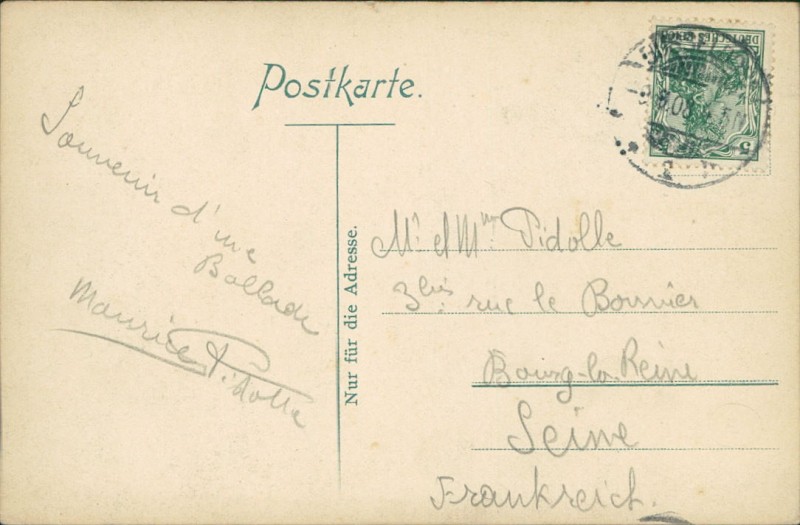 Postkarte.
DEUTSCHES REICH
5
Souvenir d'une
Ballade
Maurice Pidolle
Nur für die Adresse.
Mr. et Mme Pidolle
3bis rue le Bouvier
Bourg-la-Reine
Seine
Frankreich.